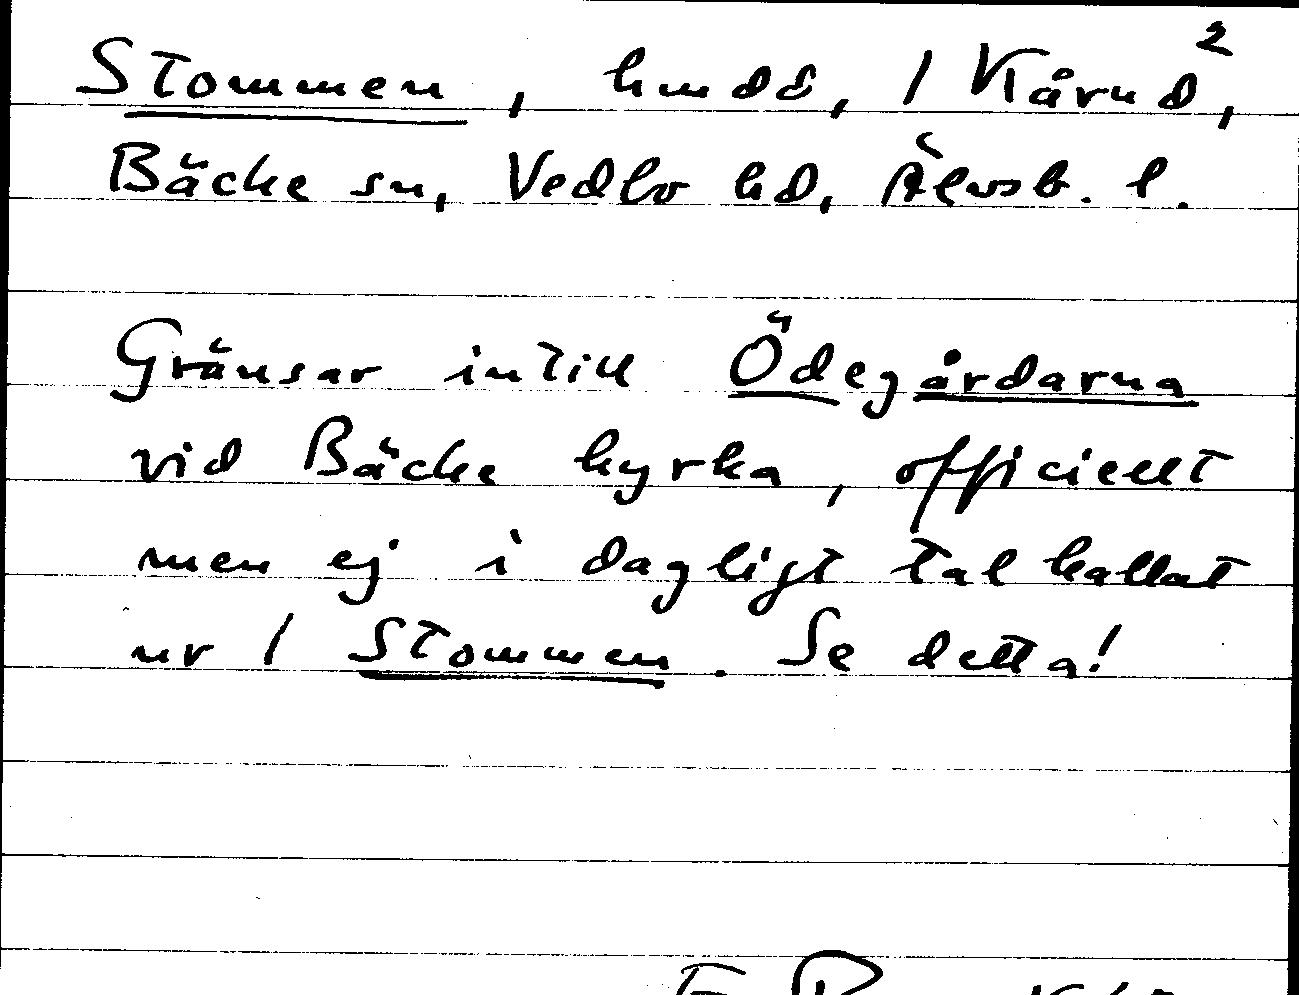 Stommen, hmdd, 1 Kårud²,
Bäcke sn, Vedbo hd, Älvsb. l.
Gränsar intill Ödegårdarna
vid Bäcke kyrka, officiellt
men ej i dagligt tal kallat
nr 1 Stommen. Se detta!